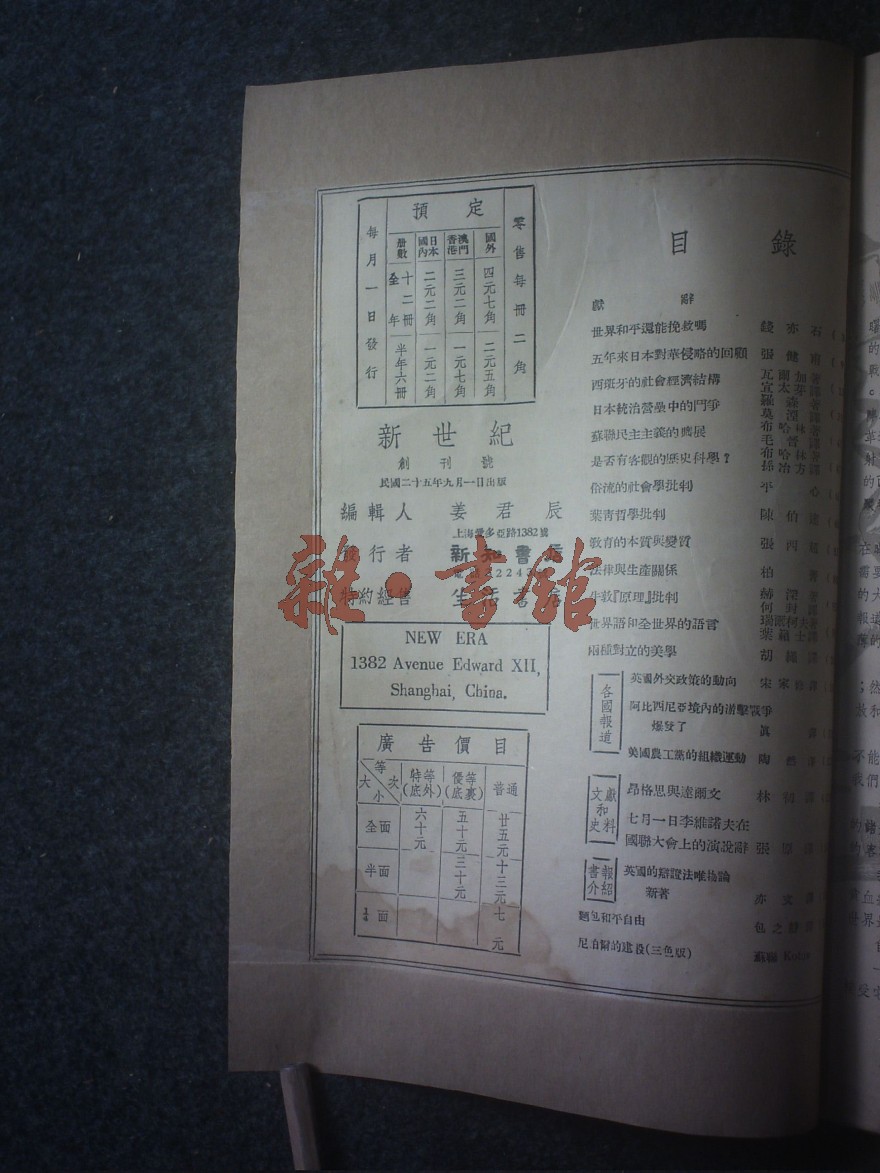 目 錄
獻 辭
世界和平還能挽救嗎 錢亦石
五年來日本對華侵略的回顧 張健甫
西班牙的社會經濟結構 瓦爾伽著
日本統治營壘中的鬥爭
蘇聯民主主義的進展
是否有客觀的歷史科學? 布哈林著 孫冶方譯
俗流的社會學批判 平心
葉青哲學批判 陳伯達
教育的本質與變質
法律與生產關係 柏
生敎『原理』批判
世界語和全世界的語言 葉籟士譯
兩種對立的美學 胡繩譯
各國報道
英國外交政策的動向
阿比西尼亞境內的游擊戰爭
爆發了
美國農工黨的組織運動
文獻和史料
昂格思與達爾文 林
七月一日李維諾夫在
國聯大會上的演說辭 張
書報介紹
英國的辯證法唯物論
新著
麵包和平自由 包之靜
尼泊爾的建設(三色版) 蘇聯
每月一日發行
零售每冊二角
預定
冊數
國內日本
香港澳門
國外
全年十二冊 二元二角 三元二角 四元七角
半年六冊 一元二角 一元七角 二元五角
新世紀
創刊號
民國二十五年九月一日出版
編輯人 姜君辰
上海愛多亞路1382號
發行者 新知書店
特約經售 生活書店
NEW ERA
1382 Avenue Edward XII,
Shanghai, China.
廣告價目
等次 大小 特等(底外) 優等(底裏) 普通
全面 六十元 五十元 廿五元
半面 三十元 十三元
¼面 七元
雜·書館